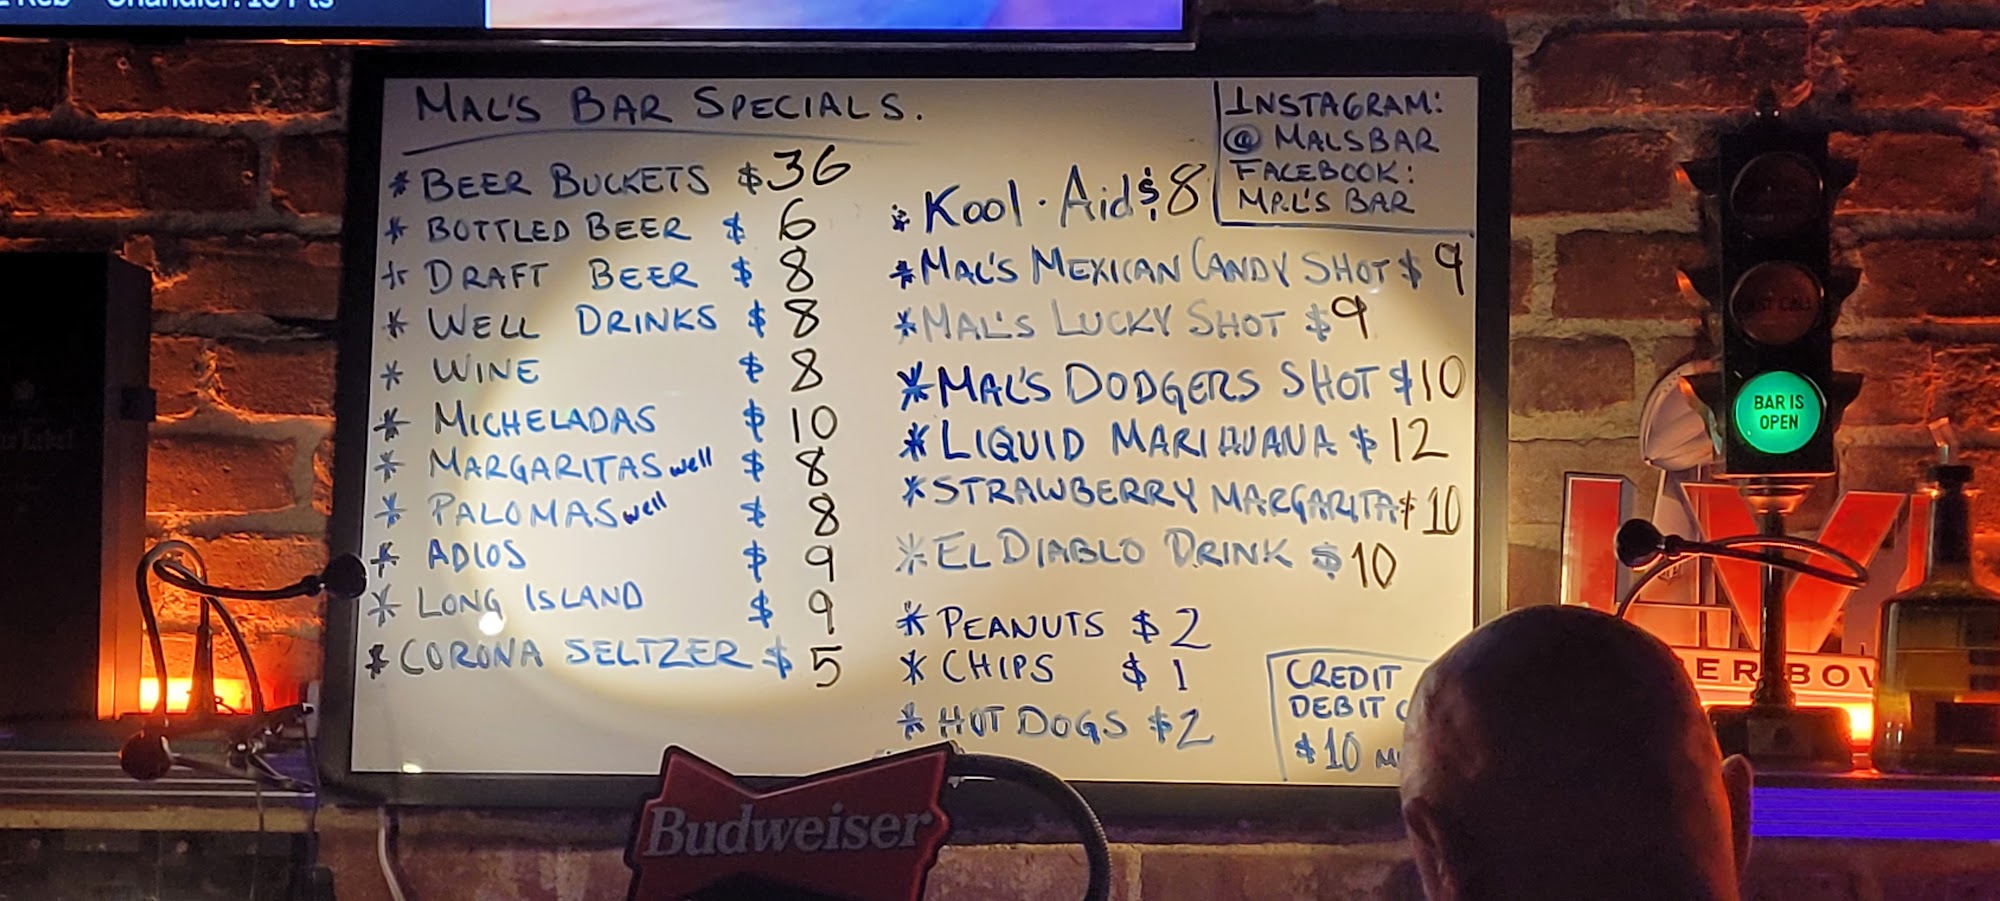 Chandler: 10 Pts
MAL'S BAR SPECIALS.
* BEER BUCKETS $36
* BOTTLED BEER $ 6
* DRAFT BEER $ 8
* WELL DRINKS $ 8
* WINE $ 8
* MICHELADAS $ 10
* MARGARITAS well $ 8
* PALOMAS well $ 8
* ADIOS $ 9
* LONG ISLAND $ 9
* CORONA SELTZER $ 5
* Kool-Aid $ 8
* MAL'S MEXICAN CANDY SHOT $ 9
* MAL'S LUCKY SHOT $9
* MAL'S DODGERS SHOT $10
* LIQUID MARIHUANA $ 12
* STRAWBERRY MARGARITA $ 10
* EL DIABLO DRINK $ 10
* PEANUTS $ 2
* CHIPS $ 1
* HOT DOGS $2
INSTAGRAM:
@ MALSBAR
FACEBOOK:
MAL'S BAR
CREDIT
DEBIT
$10
BAR IS
OPEN
LV
Budweiser